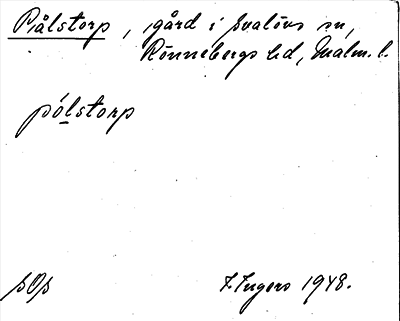 Pålstorp, gård i Svalövs sn,
Rönnebergs hd, Malm. l.
pólstorp
sOp
F. Ingers 1948.